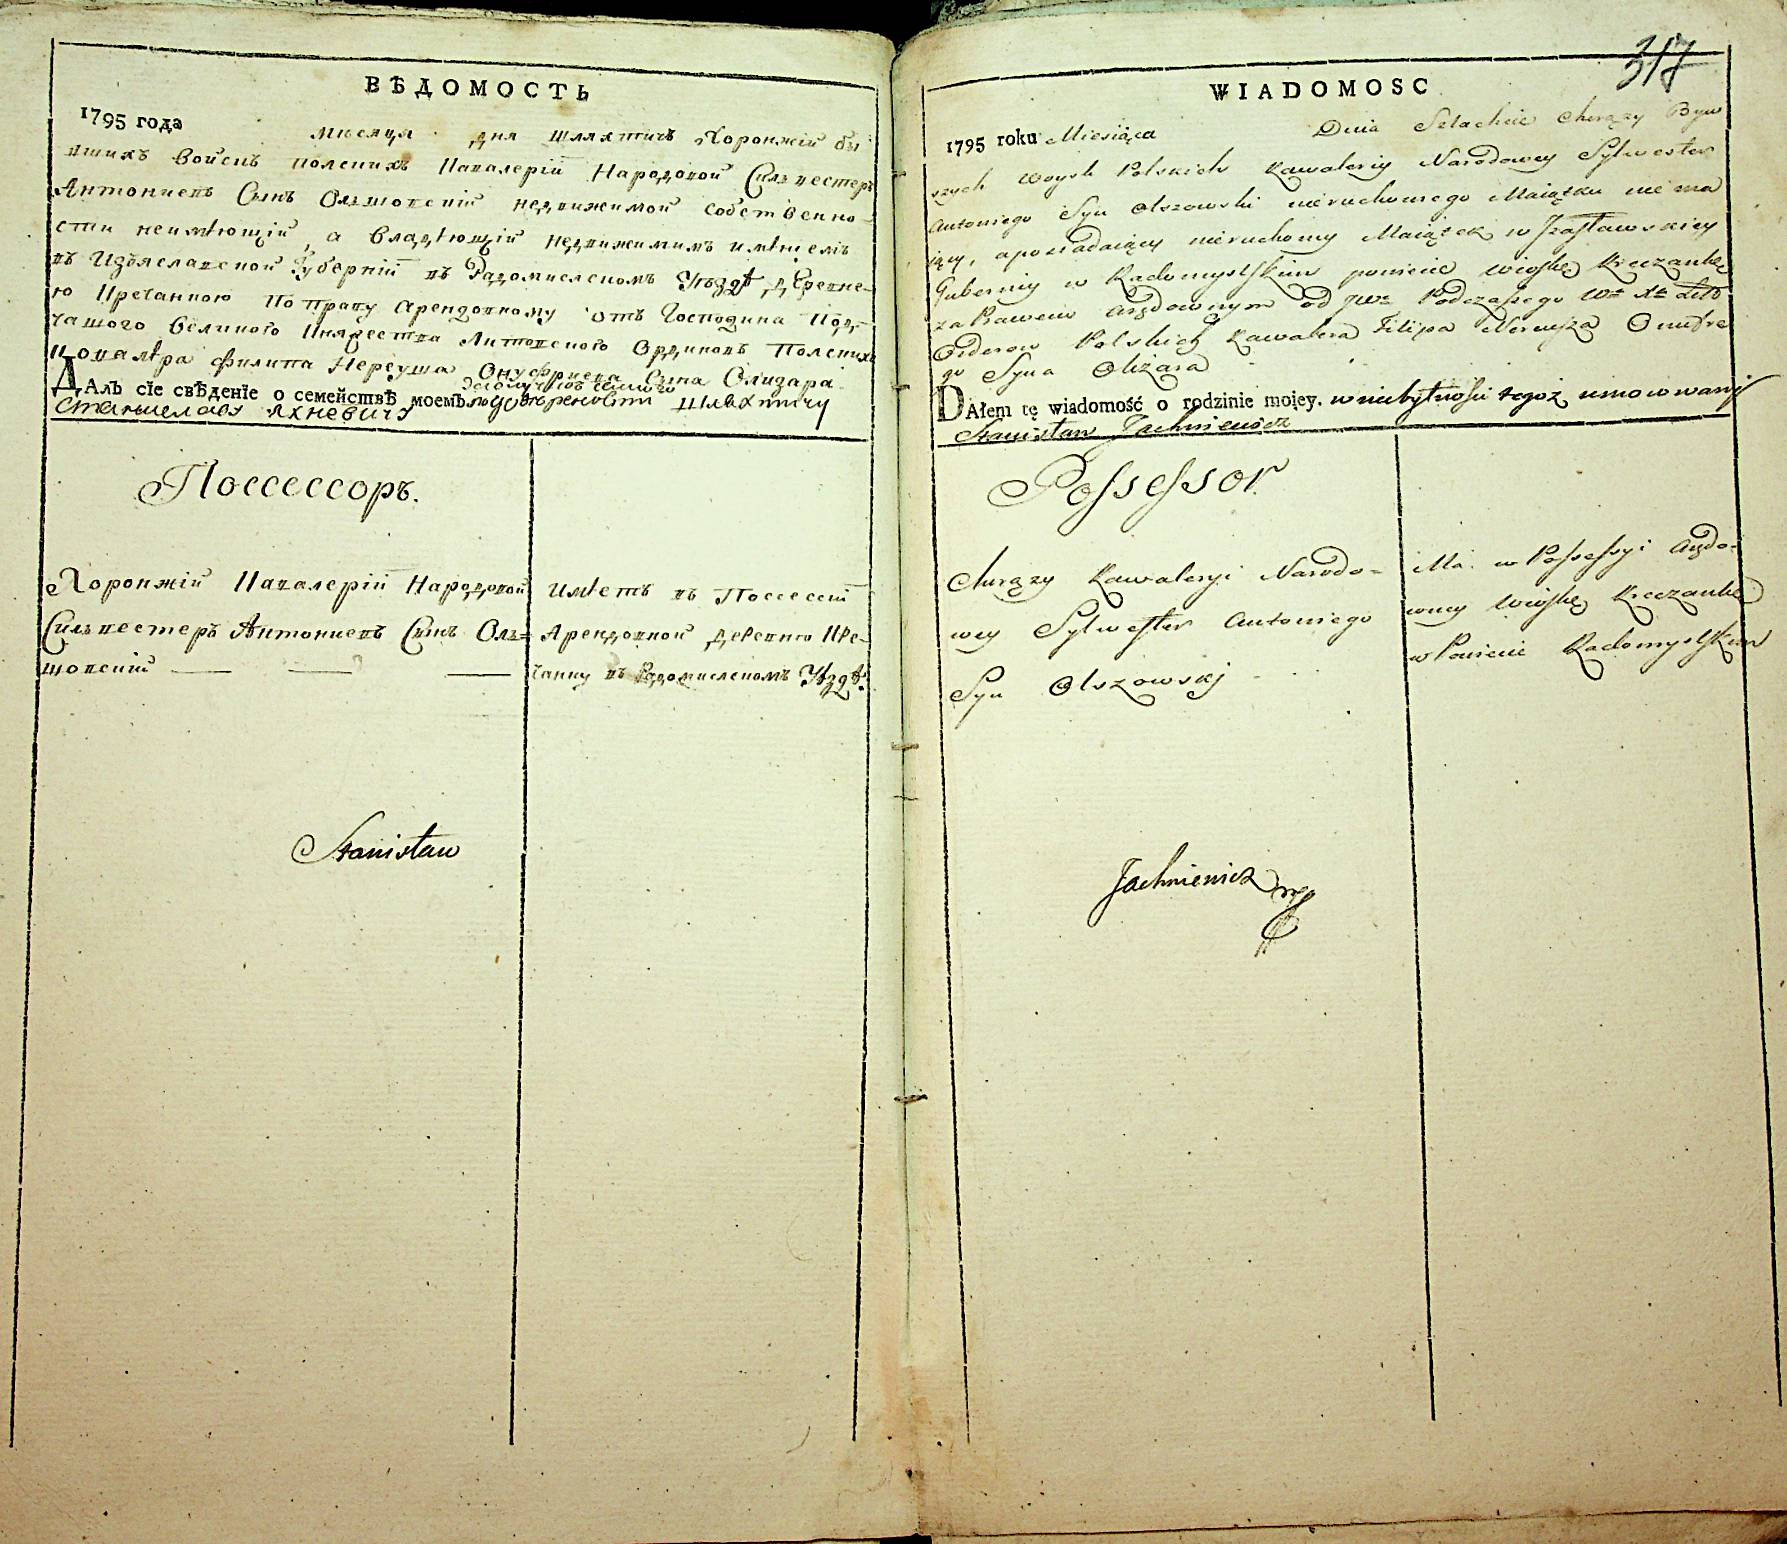 ВѢДОМОСТЬ
1795 года мѣсяца дня шляхтичъ Хоронжій бы
вшихъ войскъ полскихъ Кавалеріи Народовой Сильвестеръ
Антоніевъ Сынъ Олшовскій недвижимой собственно-
сти неимѣющій, а владѣющій недвижимимъ имѣнемъ
въ Изъяславской Губерніи въ Радомислскомъ Уѣздѣ деревне-
ю Кречанкою по праву арендовному отъ Господина Под-
чашого Великого Княжества Литовского Ординовъ Полскихъ
Кавалѣра Филипа Нереуша Онуфриева Сына Олизара
ДАлъ сіе свѣденіе о семействѣ моемъ шляхтичу
Станиславу Яхневичу
Поссессоръ.
Хоронжій Кавалеріи Народовой
Сильвестеръ Антоніевъ Сынъ Ол-
шовскій
Имѣетъ въ Поссессіи
Арендовной деревню Кре-
чанку въ Радомислскомъ Уѣздѣ.
Stanisław
317
WIADOMOSC
1795 roku Miesiąca Dnia Szlachcic Chorąży Byw
szych Woysk Polskich Kawaleriy Narodowey Sylwester
Antoniego Syn Olszowski nieruchomego Maiątku nie ma
iący, a posiadaiący nieruchomy Maiątek w Jzasławskiey
Guberniy w Radomyslskim powiecie wioskę Kreczankę
za Prawem Arędownym od JWo Podczaszego Wo Xo Litto
Orderow Polskich Kawalera Filipa Nereusza Onufre
go Syna Olizara
DAłem tę wiadomość o rodzinie moiey. w niebytności tegoż umocowany
Stanisław Jachniewicz
Possessor
Chorąży Kawaleryi Narodo-
wey Sylwester Antoniego
Syn Olszowskj
Ma w Possessyi Arędo-
wney Wioskę Kreczankę
w Powiecie Radomyslskim
Jachniewicz